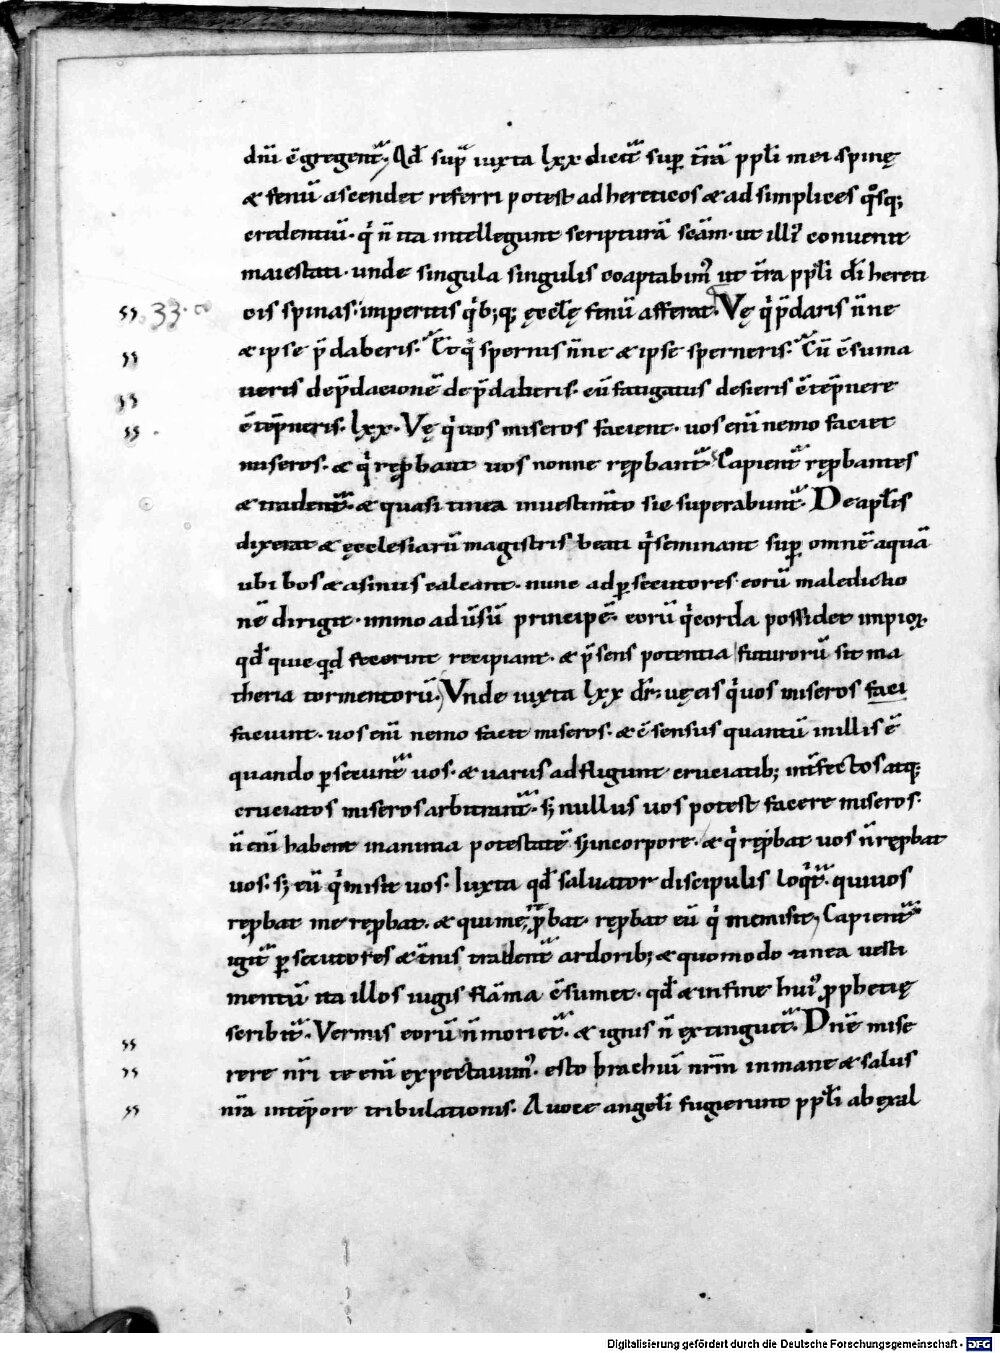 dñi c̄gregent᷑. Qđ sup̄ iuxta lxx diect᷑ sup t̄rā ppłi mei spinę
& fenū ascendet referri potest ad hereticos & ad simplices q̊sq;
credentiū. q̇ ñ ita intellegunt scripturā sc̄am. ut illi᾽ conuenit
maiestati. unde singula singulis coaptabim᾽ ut t̄ra ppłi dī hereti
cis spinas. imperitis q̇b;q; ęccłę fenū afferat. Vę q̇ p̄daris ñne
33.
& ipse p̄daberis. Et q̇ spernis ñne & ipse sperneris. Cū c̄suma
ueris dep̄dacionē dep̄daberis. cū fatigatus desieris c̄tēpnere
c̄tēpneris. lxx. Vę q̇ uos miseros faciunt. uos eni̅ nemo faciet
miseros. & q̇ rep̱bant uos nonne rep̱bant᷑. Capient᷑ rep̱bantes
& tradent᷑. & quasi tinea in uestim̄to sic superabunt᷑. De apłis
dixerat & ęcclesiarū magistris. beati q̇ seminant sup omnē aquā
ubi bos & asinus calcant. nunc ad p̱secutores eorū maledictio
nē dirigit. immo ad ūsū principē eorū q̇ corda possidet impioꝝ.
qđ quicq̇d fecerint recipiant. & p̄sens potentia futurorū sit ma
theria tormentorū. Vnde iuxta lxx dr̄. uę eis q̇ uos miseros faci
faciunt. uos eni̅ nemo facit miseros. & ē sensus quantū in illis ē
quando p̱secunt᷑ uos. & uariis adfligunt cruciatib; int̄fectos atq;
cruciatos miseros arbitrant᷑. s; nullus uos potest facere miseros.
ñ eni̅ habent in anima potestatē s; in corpore. & q̇ rep̱bat uos ñ rep̱bat
uos. s; eū q̇ misit uos. Iuxta qđ saluator discipulis loq̇t᷑. qui uos
rep̱bat me rep̱bat. & qui me rep̱bat. rep̱bat eū q̇ me misit. Capient᷑
igit᷑ p̱secutores & t̄nis tradent᷑ ardorib; & quomodo tinea uesti
mentū ita illos iugis flāma c̄sumet. qđ & in fine hui᾽ p̱phetię
scribit᷑. Vermis eorū ñ moriet᷑. & ignis ñ extinguet᷑. Dn̄e mise
rere nr̄i te eni̅ expectauim᾽. esto brachiū nr̄m in mane & salus
nr̄a in tēpore tribulationis. A uoce angeli fugierunt ppłi ab exal
Digitalisierung gefördert durch die Deutsche Forschungsgemeinschaft - DFG